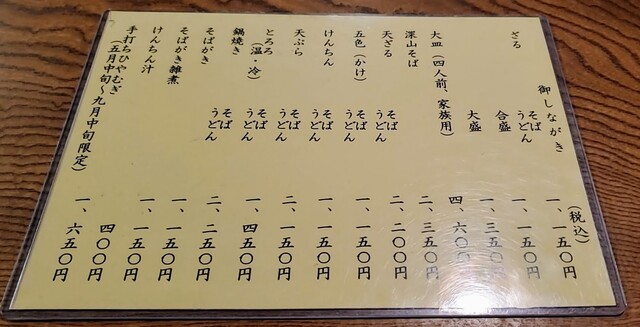 御しながき
(税込)
ざる そば うどん 一、一五〇円
合盛 一、一五〇円
大盛 一、三五〇円
大皿(四人前、家族用) 四、六〇〇円
深山そば 二、三五〇円
天ざる そば うどん 二、二〇〇円
五色(かけ) そば うどん 一、一五〇円
けんちん そば うどん 一、一五〇円
天ぷら そば うどん 二、一五〇円
とろろ(温・冷) そば うどん 一、四五〇円
鍋焼き そば うどん 二、二五〇円
そばがき 一、一五〇円
そばがき雑煮 一、一五〇円
けんちん汁 四〇〇円
手打ちひやむぎ 一、六五〇円
(五月中旬〜九月中旬限定)